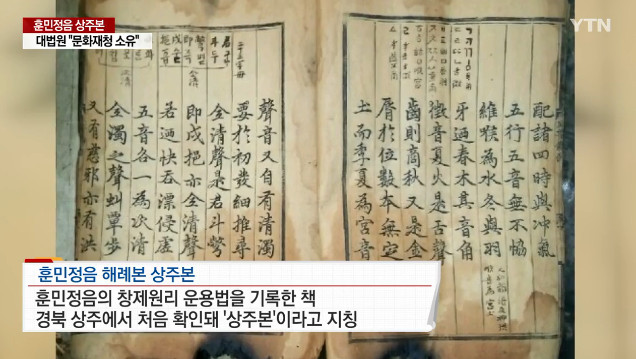 훈민정음 상주본
대법원 "문화재청 소유"
YTN
配諸四時與冲氣
五行五音無不協
維喉為水冬與羽
牙迺春木其音角
徵音夏火是舌聲
齒則商秋又是金
脣於位數本無定
土而季夏為宮音
聲音又自有清濁
要於初發細推尋
全清聲是君斗彆
即戌挹亦全清聲
若迺快吞漂侵虛
五音各一為次清
全濁之聲虯覃步
又有慈邪亦有洪
훈민정음 해례본 상주본
훈민정음의 창제원리 운용법을 기록한 책
경북 상주에서 처음 확인돼 '상주본'이라고 지칭